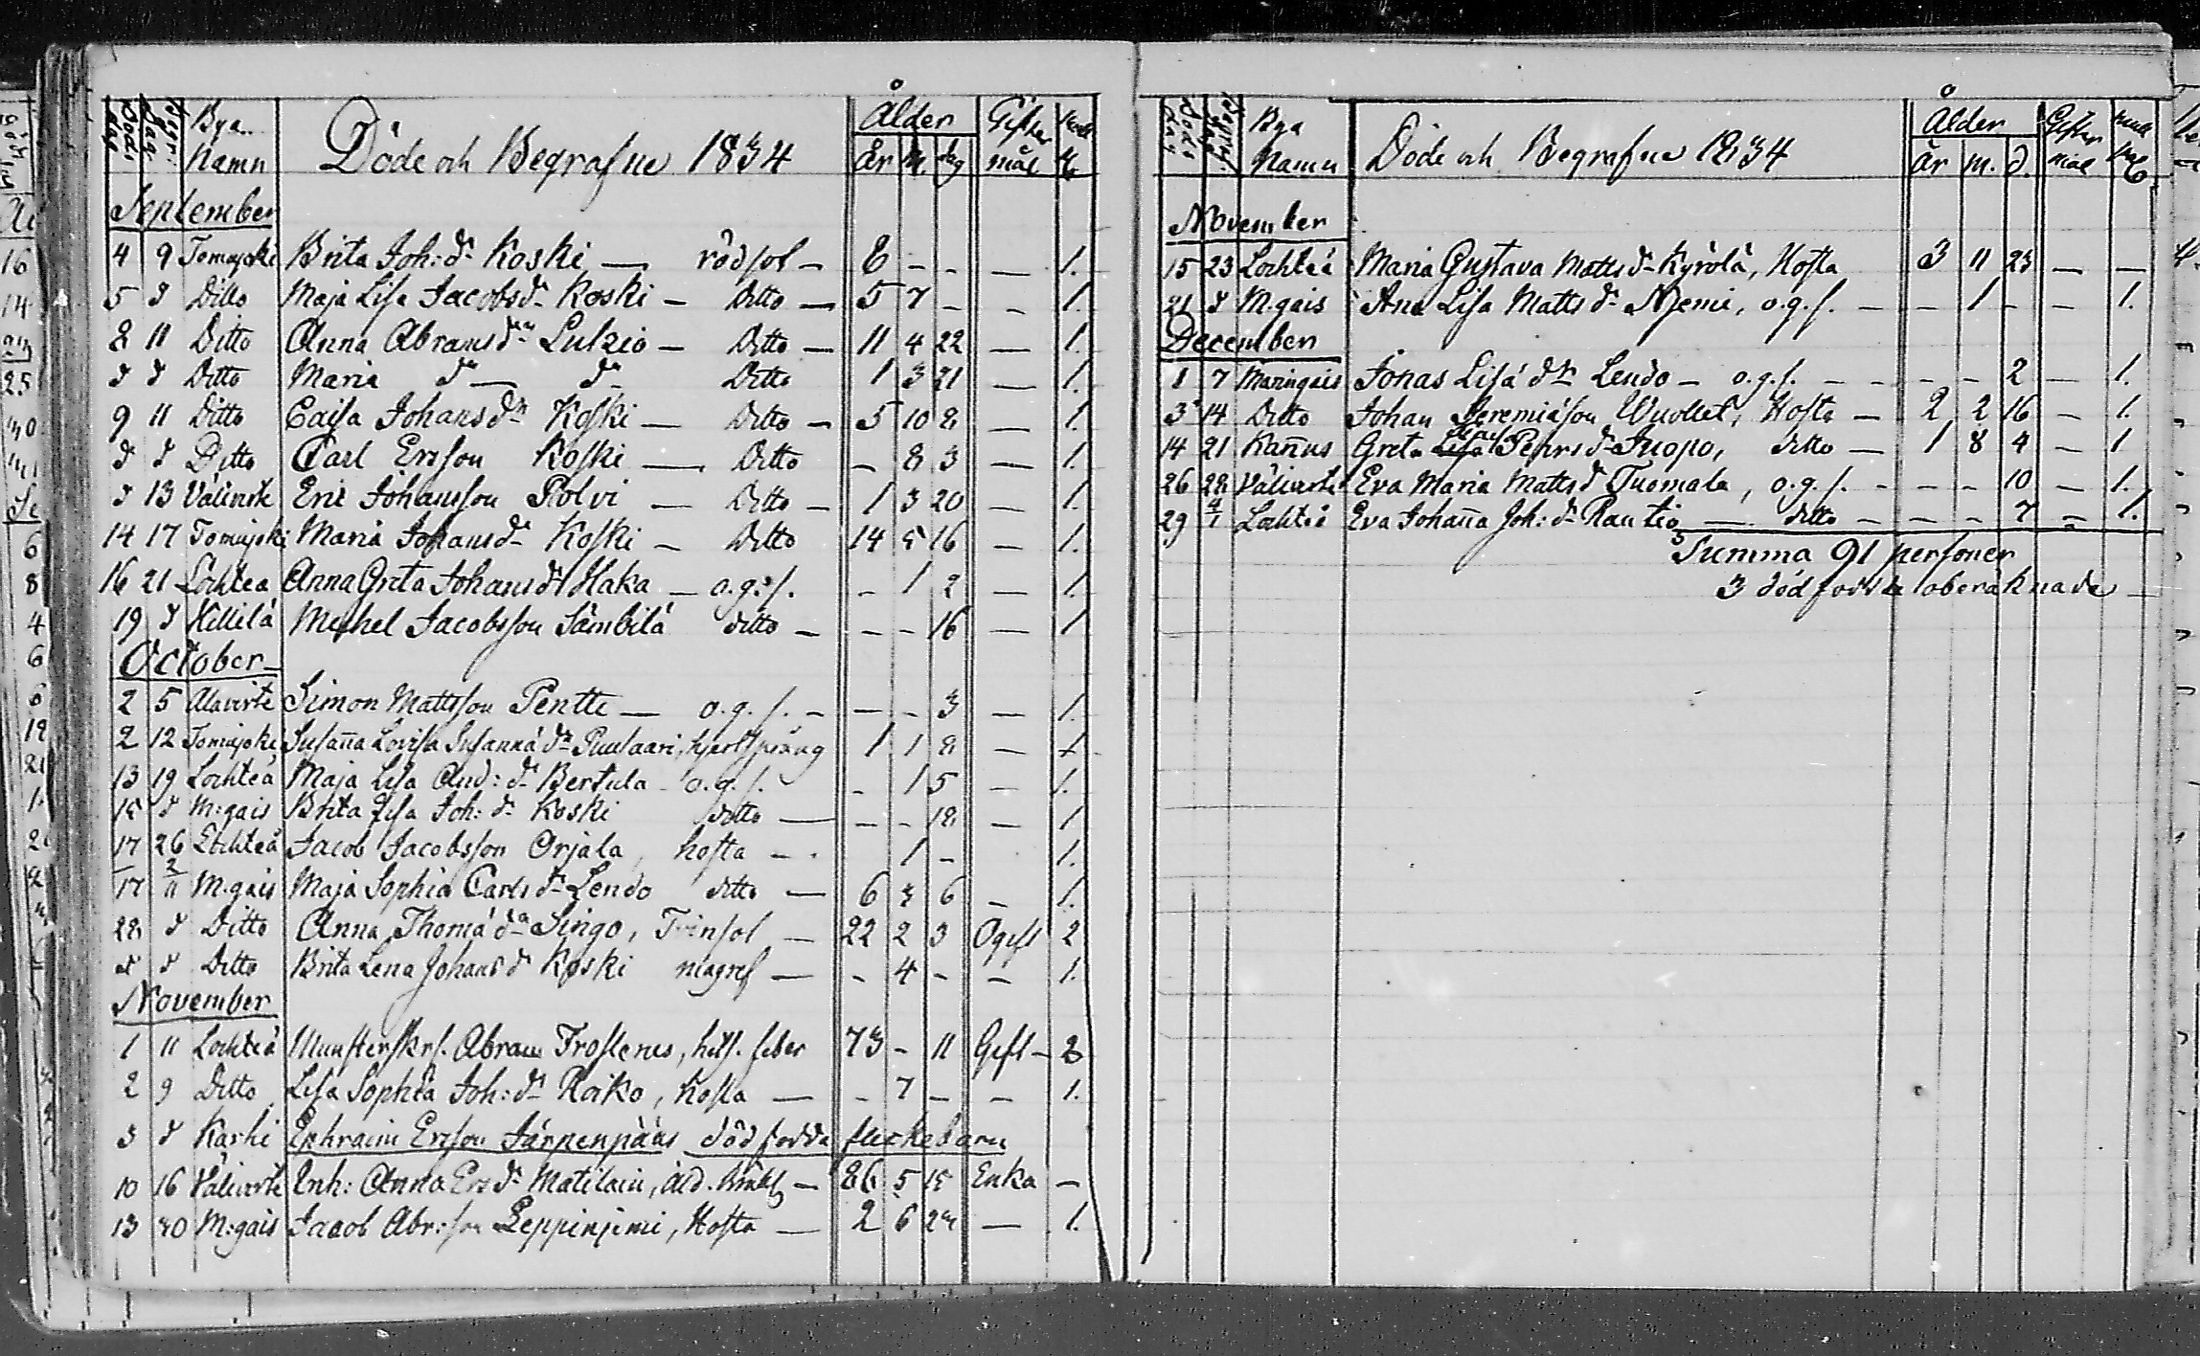 Döds dag Begr: dag Bya Namn Döde och Begrafne 1834 Ålder År M. dag Giftermål
September
4 9 Tomujoki Brita Joh: dr Koski — rödsot — 8 - - — 1.
5 d Ditto Maja Lisa Jacobs dr Koski — Ditto — 5 7 - - 1.
8 11 Ditto Anna Abrams dr Lulzio — Ditto — 11 4 22 — 1.
d d Ditto Maria dr — dr Ditto 1 3 21 — 1.
9 11 Ditto Caisa Johans dr Koski — Ditto — 5 10 8 — 1.
d d Ditto Carl Ersson Koski — Ditto — 8 3 — 1.
d 13 Välivirte Eric Johansson Polvi — Ditto — 1 3 20 — 1.
14 17 Tomujoki Maria Johans dr Koski — Ditto 14 5 16 — 1.
16 21 Lochteå Anna Greta Johans dr Haka — o.g.s. - 1 2 — 1
19 d Killilä Michel Jacobsson Sämbilä ditto — - - 16 — 1
October
2 5 Alavirte Simon Mattsson Pentti — o.g.s. - — - 3 — 1.
2 12 Tomujoki Susanna Lovisa Susannä dr Puulaari, hjertspräng 1 1 8 — 1
13 19 Lochteå Maja Lisa And: dr Bertula — o.g.s. - 1 5 — 1.
15 d M:gais Brita Lisa Joh: dr Koski ditto — - - 18 — 1.
17 26 Lochteå Jacob Jacobsson Orjala, hosta — 1 - 1.
17 2/11 M.gais Maja Sophia Carls dr Lendo ditto — 6 3 6 - 1.
28 d Ditto Anna Thomä dr Singo, Trinsot — 22 2 3 Ogift 2
d d Ditto Brita Lena Johans dr Koski magref — - 4 - - 1.
November
1 11 Lochteå Munsterskrf. Abram Frostenus, hets. feber 73 - 11 Gift — 3
2 9 Ditto Lisa Sophia Joh: dr Roiko, hosta — - 7 - - 1.
3 d Karhi Ephraim Ersson Järpenpääs död födda flickebarn
10 16 Välivirte Enk: Anna Ers dr Matilain, åld. bräckl. — 86 5 15 Enka —
13 30 M:gais Jacob Abr:son Leppinjemi, Hosta — 2 6 — 1.
Döds dag Begraf. dag Bya Namn Döde och Begrafne 1834 Ålder År M. D. Giftermål
November
15 23 Lochteå Maria Gustava Matts dr Kyrölä, Hosta 3 11 23 — —
21 d M.gais Ana Lisa Matts dr Njemi, o.g.s. — - 1 - - 1.
December
1 7 Maringais Jonas Lisä dr Lendo — o.g.s. - - - 2 — 1.
3 14 Ditto Johan Jeremiäson Wuollet, Hosta — 2 2 16 - 1.
14 21 Kañus Greta Lisa Pehrs dr Juopo, ditto — 1 8 4 - 1
26 28 Välivirte Eva Maria Matts dr Tuomala, o.g.s. - - - 10 — 1.
29 4/1 Lochteå Eva Johaña Joh: dr Rautio — ditto - - - 7 - 1.
Summa 91 personer
3 död födda oberäknade —